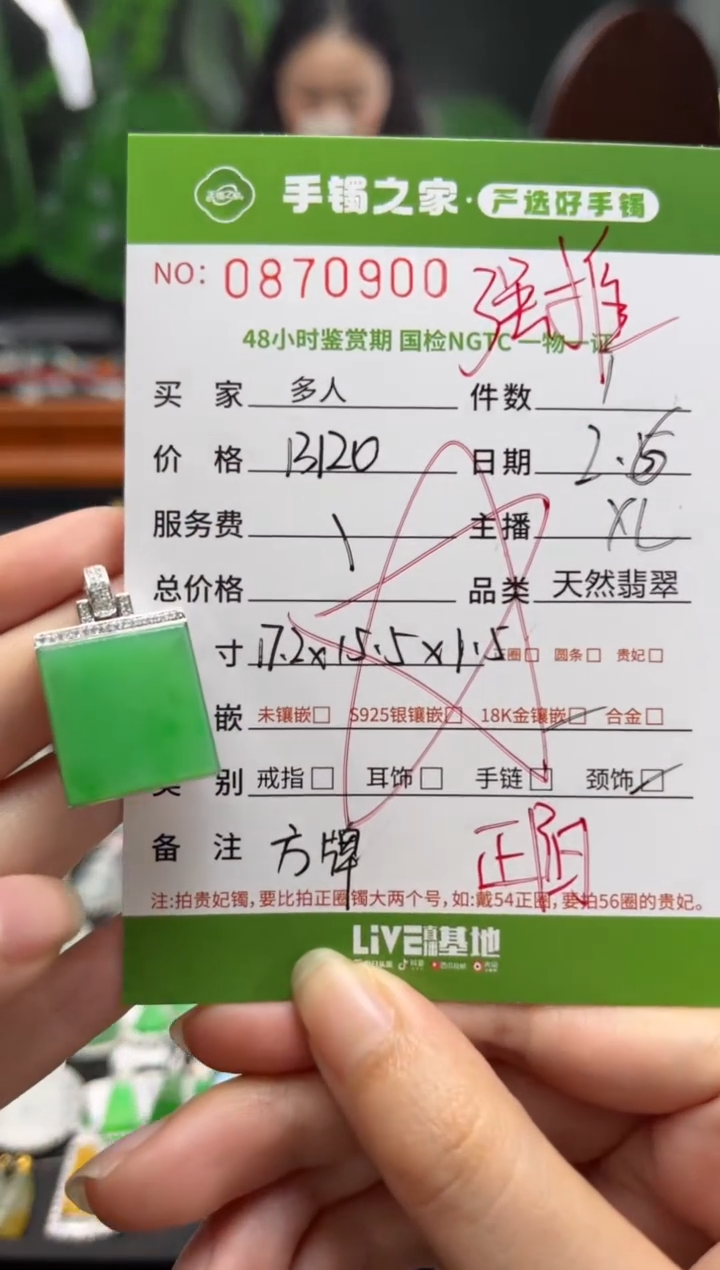 手镯之家·严选好手镯
NO: 0870900 强推
48小时鉴赏期 国检NGTC 一物一证
买 家 多人 件数 1
价 格 13120 日期 2.6
服务费 主播 XL
总价格 品类 天然翡翠
寸 17.2x15.5x1.5 正圈□ 圆条□ 贵妃□
嵌 未镶嵌□ S925银镶嵌□ 18K金镶嵌□ 合金□
类 别 戒指□ 耳饰□ 手链□ 颈饰□
备 注 方牌 正阳
注:拍贵妃镯,要比拍正圈镯大两个号,如:戴54正圈,要拍56圈的贵妃。
LiVE直播基地